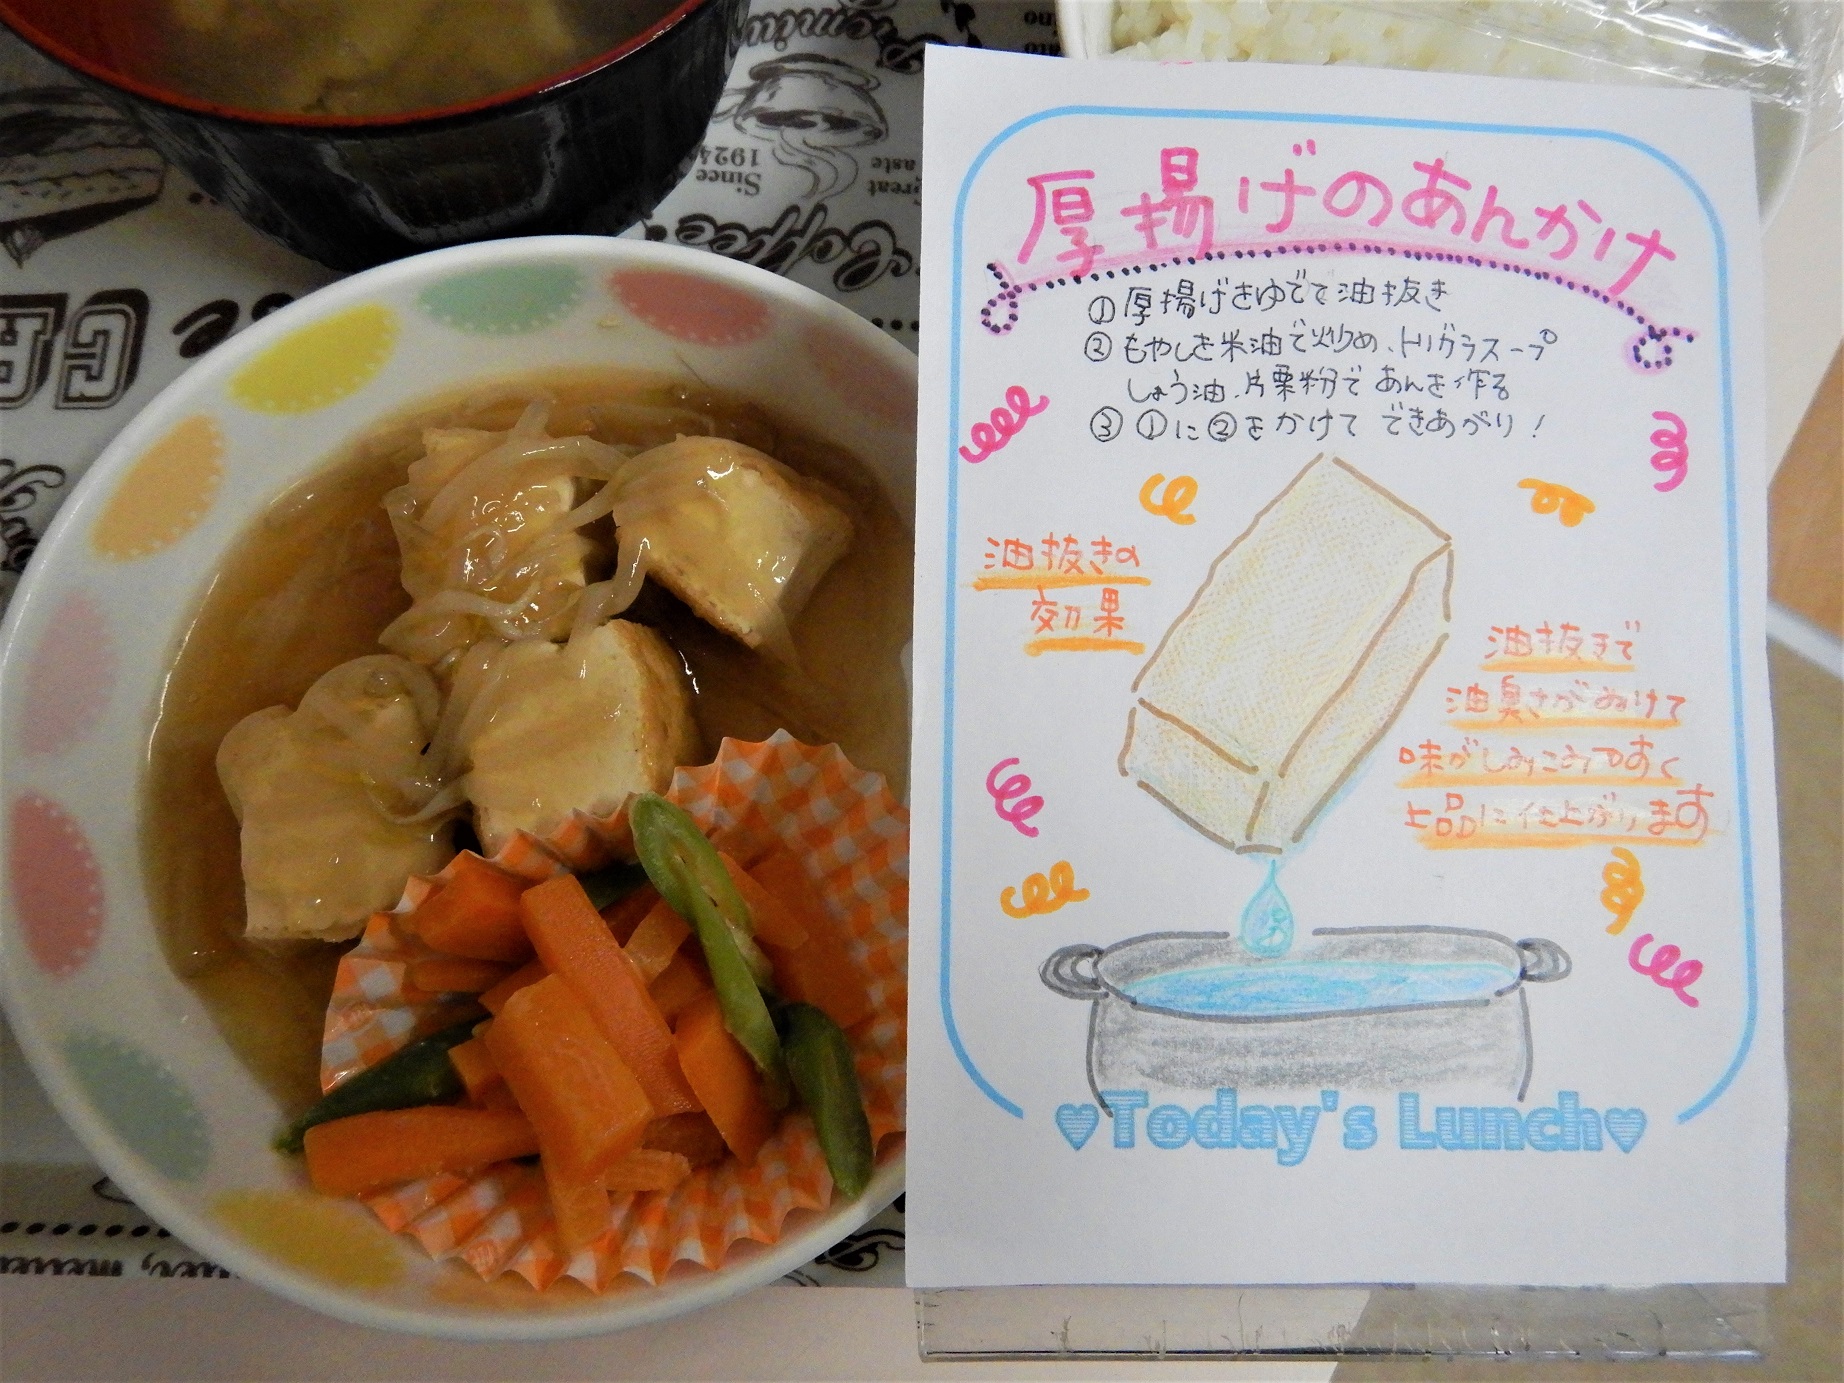 Premium
Since
1924
Great
Taste
Coffee
厚揚げのあんかけ
①厚揚げをゆでて油抜き
②もやしを米油で炒め、トリガラスープ
しょう油、片栗粉であんを作る
③①に②をかけてできあがり!
油抜きの
効果
油抜きで
油臭さがぬけて
味がしみこみやすく
上品に仕上がります
♥Today's Lunch♥